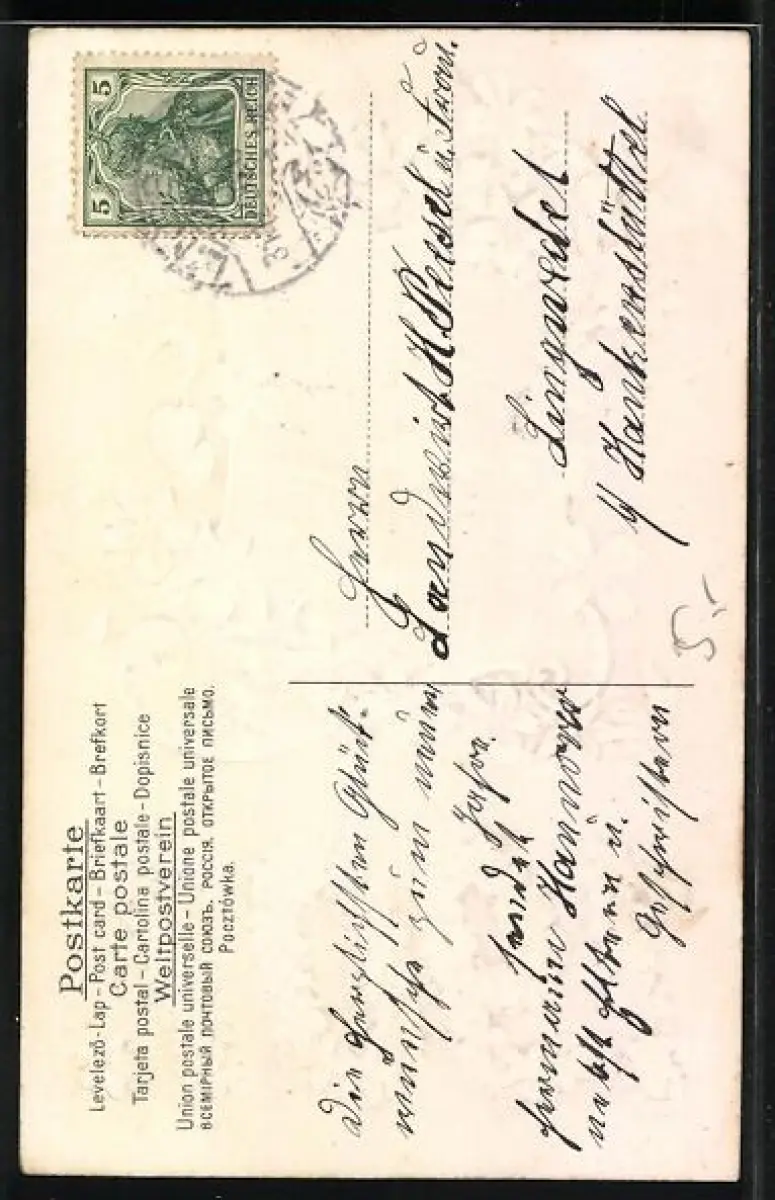 Postkarte
Levelező-Lap – Post card – Briefkaart – Brefkort
Carte postale
Tarjeta postal – Cartolina postale – Dopisnice
Weltpostverein
Union postale universelle – Unione postale universale
ВСЕМІРНЫЙ ПОЧТОВЫЙ СОЮЗЪ. РОССІЯ. ОТКРЫТОЕ ПИСЬМО.
Pocztówka.
5 5
DEUTSCHES REICH
Die herzlichsten Glück-
wünsche zum neuen
Jahre.
sendet
Hermann
nebst Eltern u.
Geschwistern
Herrn
Landwirt H. u. Frau.
Lingwedel
b/ Hankensbüttel
5,-